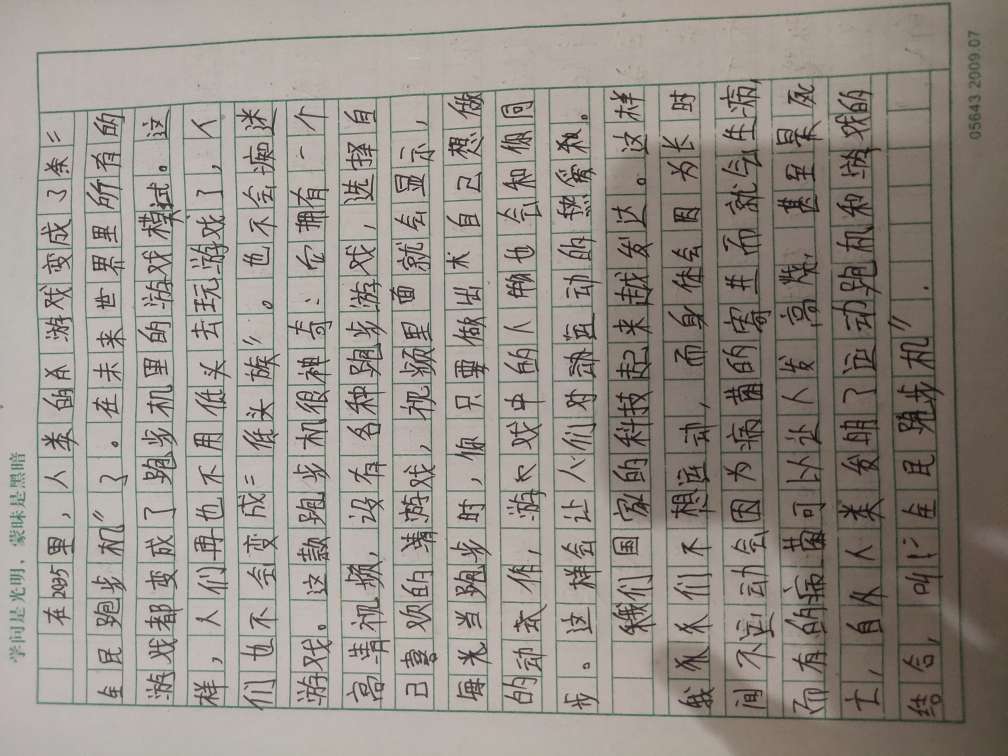 学问是光明，蒙昧是黑暗
在2035里，人类的游戏变成了条"
全民跑步机"了。在未来世界里所有的
游戏都变成了跑步机里的游戏模试。这
样，人们再也不用低头去玩游戏了，个
们也不会变成"低头族"。也不会痴迷
游戏。这款跑步机很神奇：它拥有一个
高清视频，设有各种跑步游戏，选择自
己喜欢的游戏，视频里面就会显示，
每当跑步时，你只要做出术自己想做
的动作，游戏中的人物也会和你同
步。这样会让人们对运动的热爱。
我们国家的科技起来越发达。这样
我们不想运动，而身体会因为长时
间不运动会因为病菌的寄生而就会生病，
而有的病菌可以让人发高烧，甚至暴死
亡，自从人类发明了运动跑机和游戏的
结合，叫"全民跑步机"．
05643 2009.07